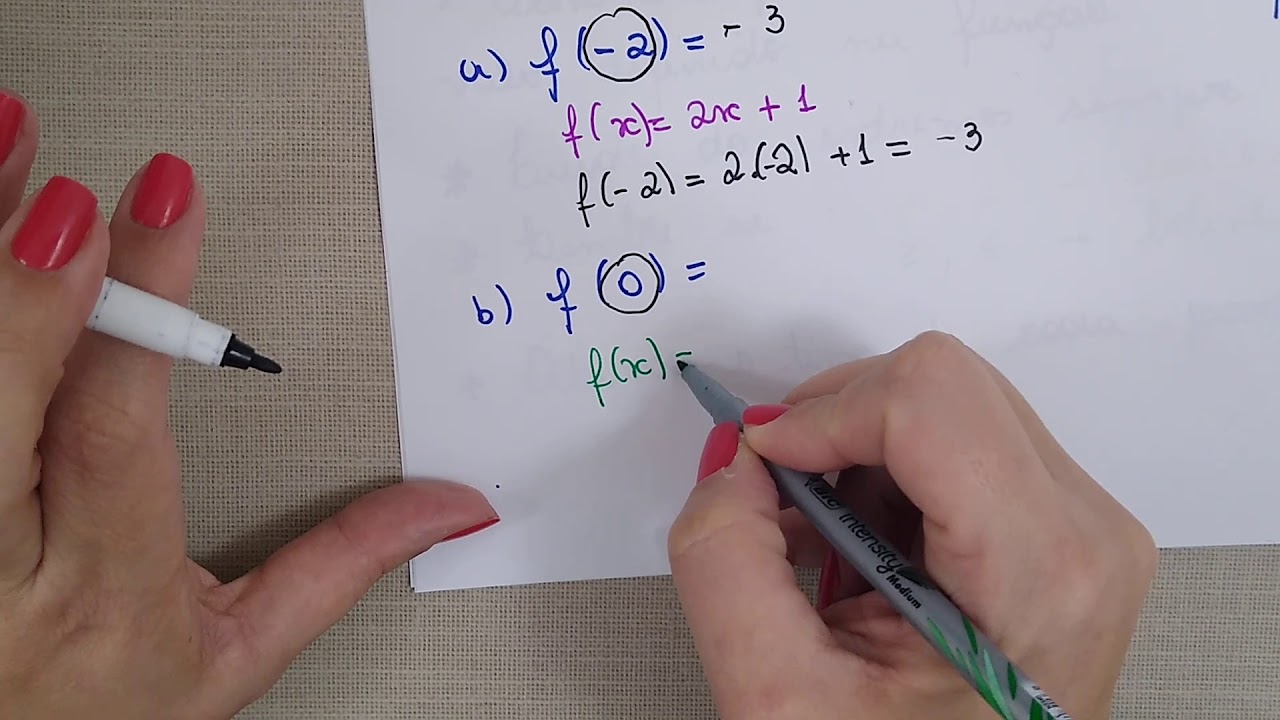 a) f(-2) = - 3
f(x) = 2x + 1
f(-2) = 2.(-2) + 1 = - 3
b) f(0) =
f(x) =
intensity
Medium